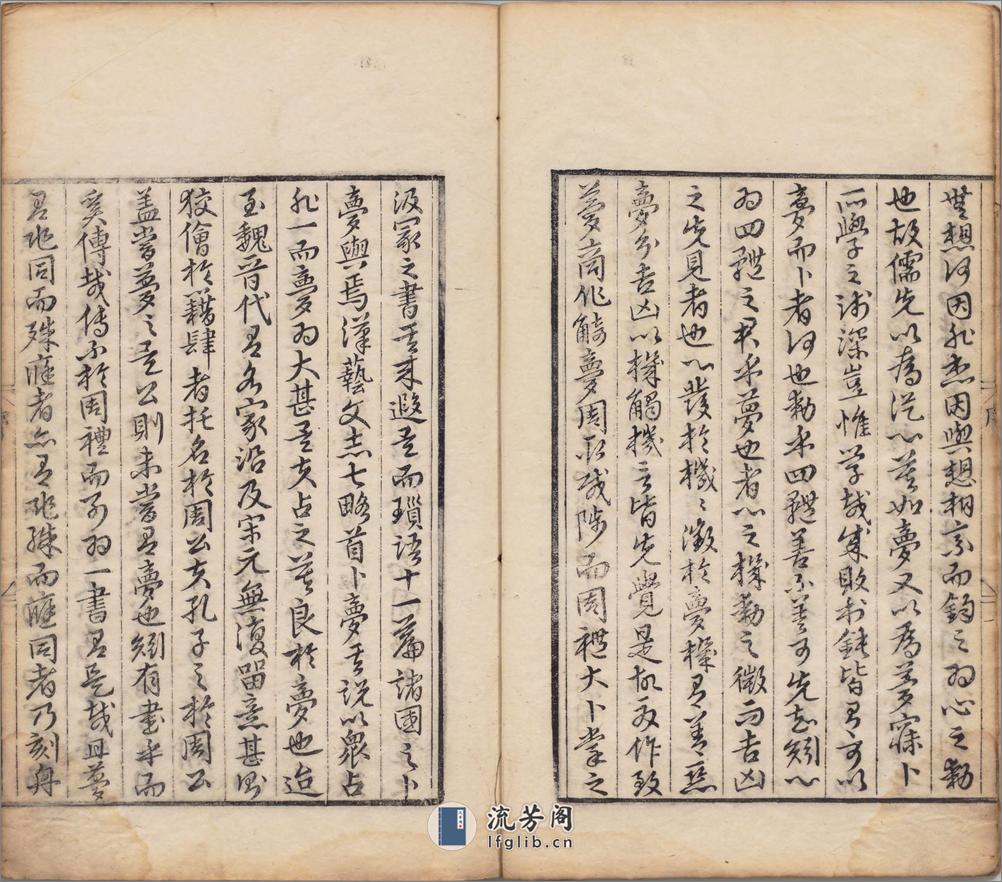 無想何因非想因與想相系而鈞之為心之動
也故儒先以為從心莫如夢又以為夢寐卜
所學之淺深豈惟學哉成敗利鈍皆有可以
夢而卜者何也動乎四體善不善可先知矧心
為四體之君乎夢也者心之機動之微而吉凶
之先見者也心發於機機徵於夢機有善惡
夢分吉凶以機觸機言皆先覺是故夏作致
夢商作觭夢周取咸陟而周禮大卜掌之
汲冢之書其來遐矣而瑣語十一篇諸國之卜
夢與焉漢藝文志七略首卜夢其說以眾占
非一而夢為大甚矣占之莫良於夢也迨
至魏晉代有名家沿及宋元無復留意甚則
狡儈於藉肆者托名於周公夫孔子之於周公
蓋嘗夢之矣公則未嘗有夢也矧有書乎而
奚傳哉傳不於周禮而別為一書有是哉且夢
有兆同而殊應者亦有兆殊而應同者乃刻舟
流芳閣
lfglib.cn